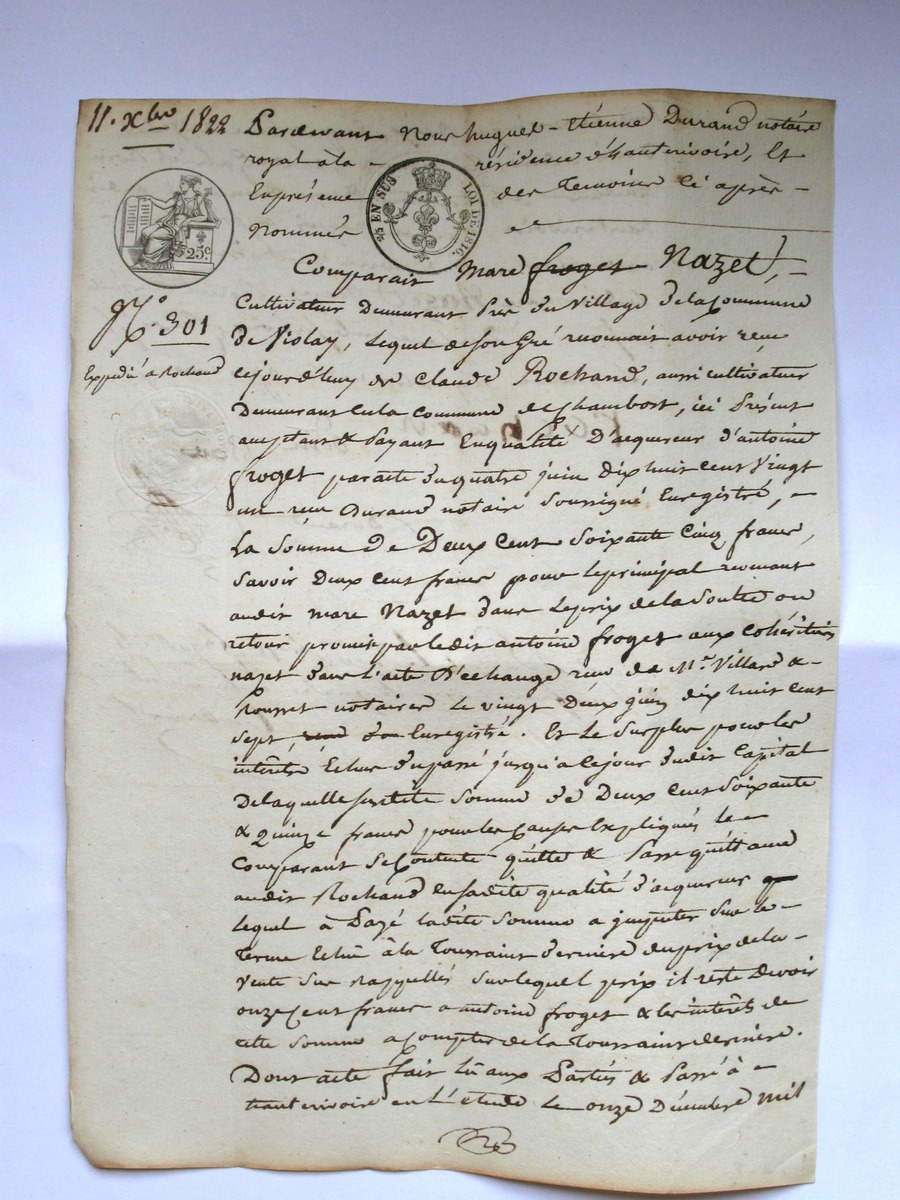 11. Xbre 1822
Pardevant Nous hugues-Etienne Durand notaire
royal à la résidence d'hauterivoire, Et
En présence des Temoins ci après
Nommés
25 EN SUS
LOI DE 1816
25c
Comparait Marc froget Nazet,
N.o 301
Expedié a Rochand
Cultivateur demeurant Près du Village de la Commune
de Violay, Lequel de son Gré reconnait avoir recu
cejourd'huy de Claude Rochand, aussi cultivateur
Demeurant en la Commune de Chambost, ici Présent
acceptant & Payant En qualité D'acquereur d'antoine
froget par acte du quatre juin dix huit cent Vingt
un recu Durand notaire Soussigné Enregistré,
La Somme De Deux Cent Soixante Cinq francs,
Savoir Deux Cent francs pour le principal revenant
audit Marc Nazet dans le prix de la Soulte ou
retour promis par ledit antoine froget aux Cohéritiers
nazet dans l'acte D'echange recu de Mrs Villard &
notaires Le vingt Deux juin dix huit cent
Sept, Enregistré. Et Le Surplus pour les
interêts Echus du passé jusqu'a ce jour dudit Capital
De laquelle susdite Somme de Deux Cent Soixante
& Quinze francs pour les Causes Expliqués le
Comparant Se Contente quitte & Passe quittance
audit Rochand en sadite qualité d'acquereur
lequel à Payé ladite Somme a imputer Sur le
Terme Echu à la Toussaint derniere du prix de la
Vente Sus Rappellés Sur lequel prix il reste Devoir
onze Cent francs a antoine froget & les interêts de
cette Somme a Compter de la Toussaint derniere.
Dont acte fait Lû aux Parties & Passé à
hauterivoire en L'étude Le onze Décembre mil